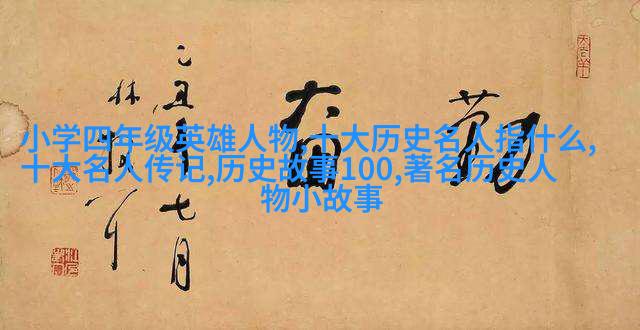 小学四年级英雄人物,十大历史名人指什么,
十大名人传记,历史故事100,著名历史人
物小故事
勤奋
乙丑年七月
林散耳